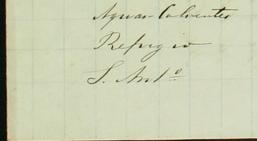 Aguas Calientes
Refugio
S. Anto